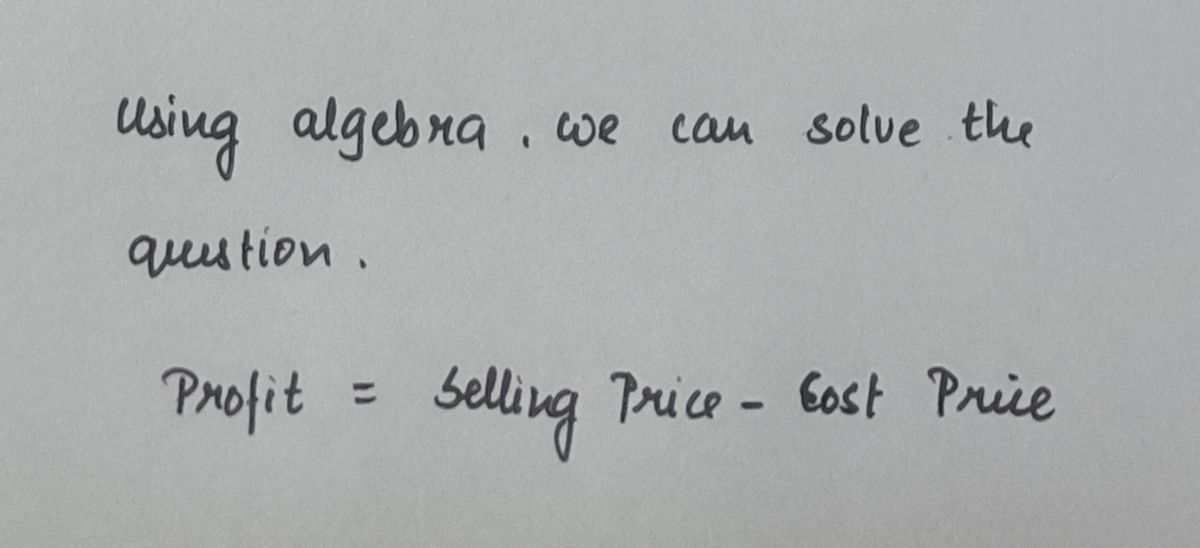 Using algebra, we can solve the
question.
Profit = Selling Price - Cost Price